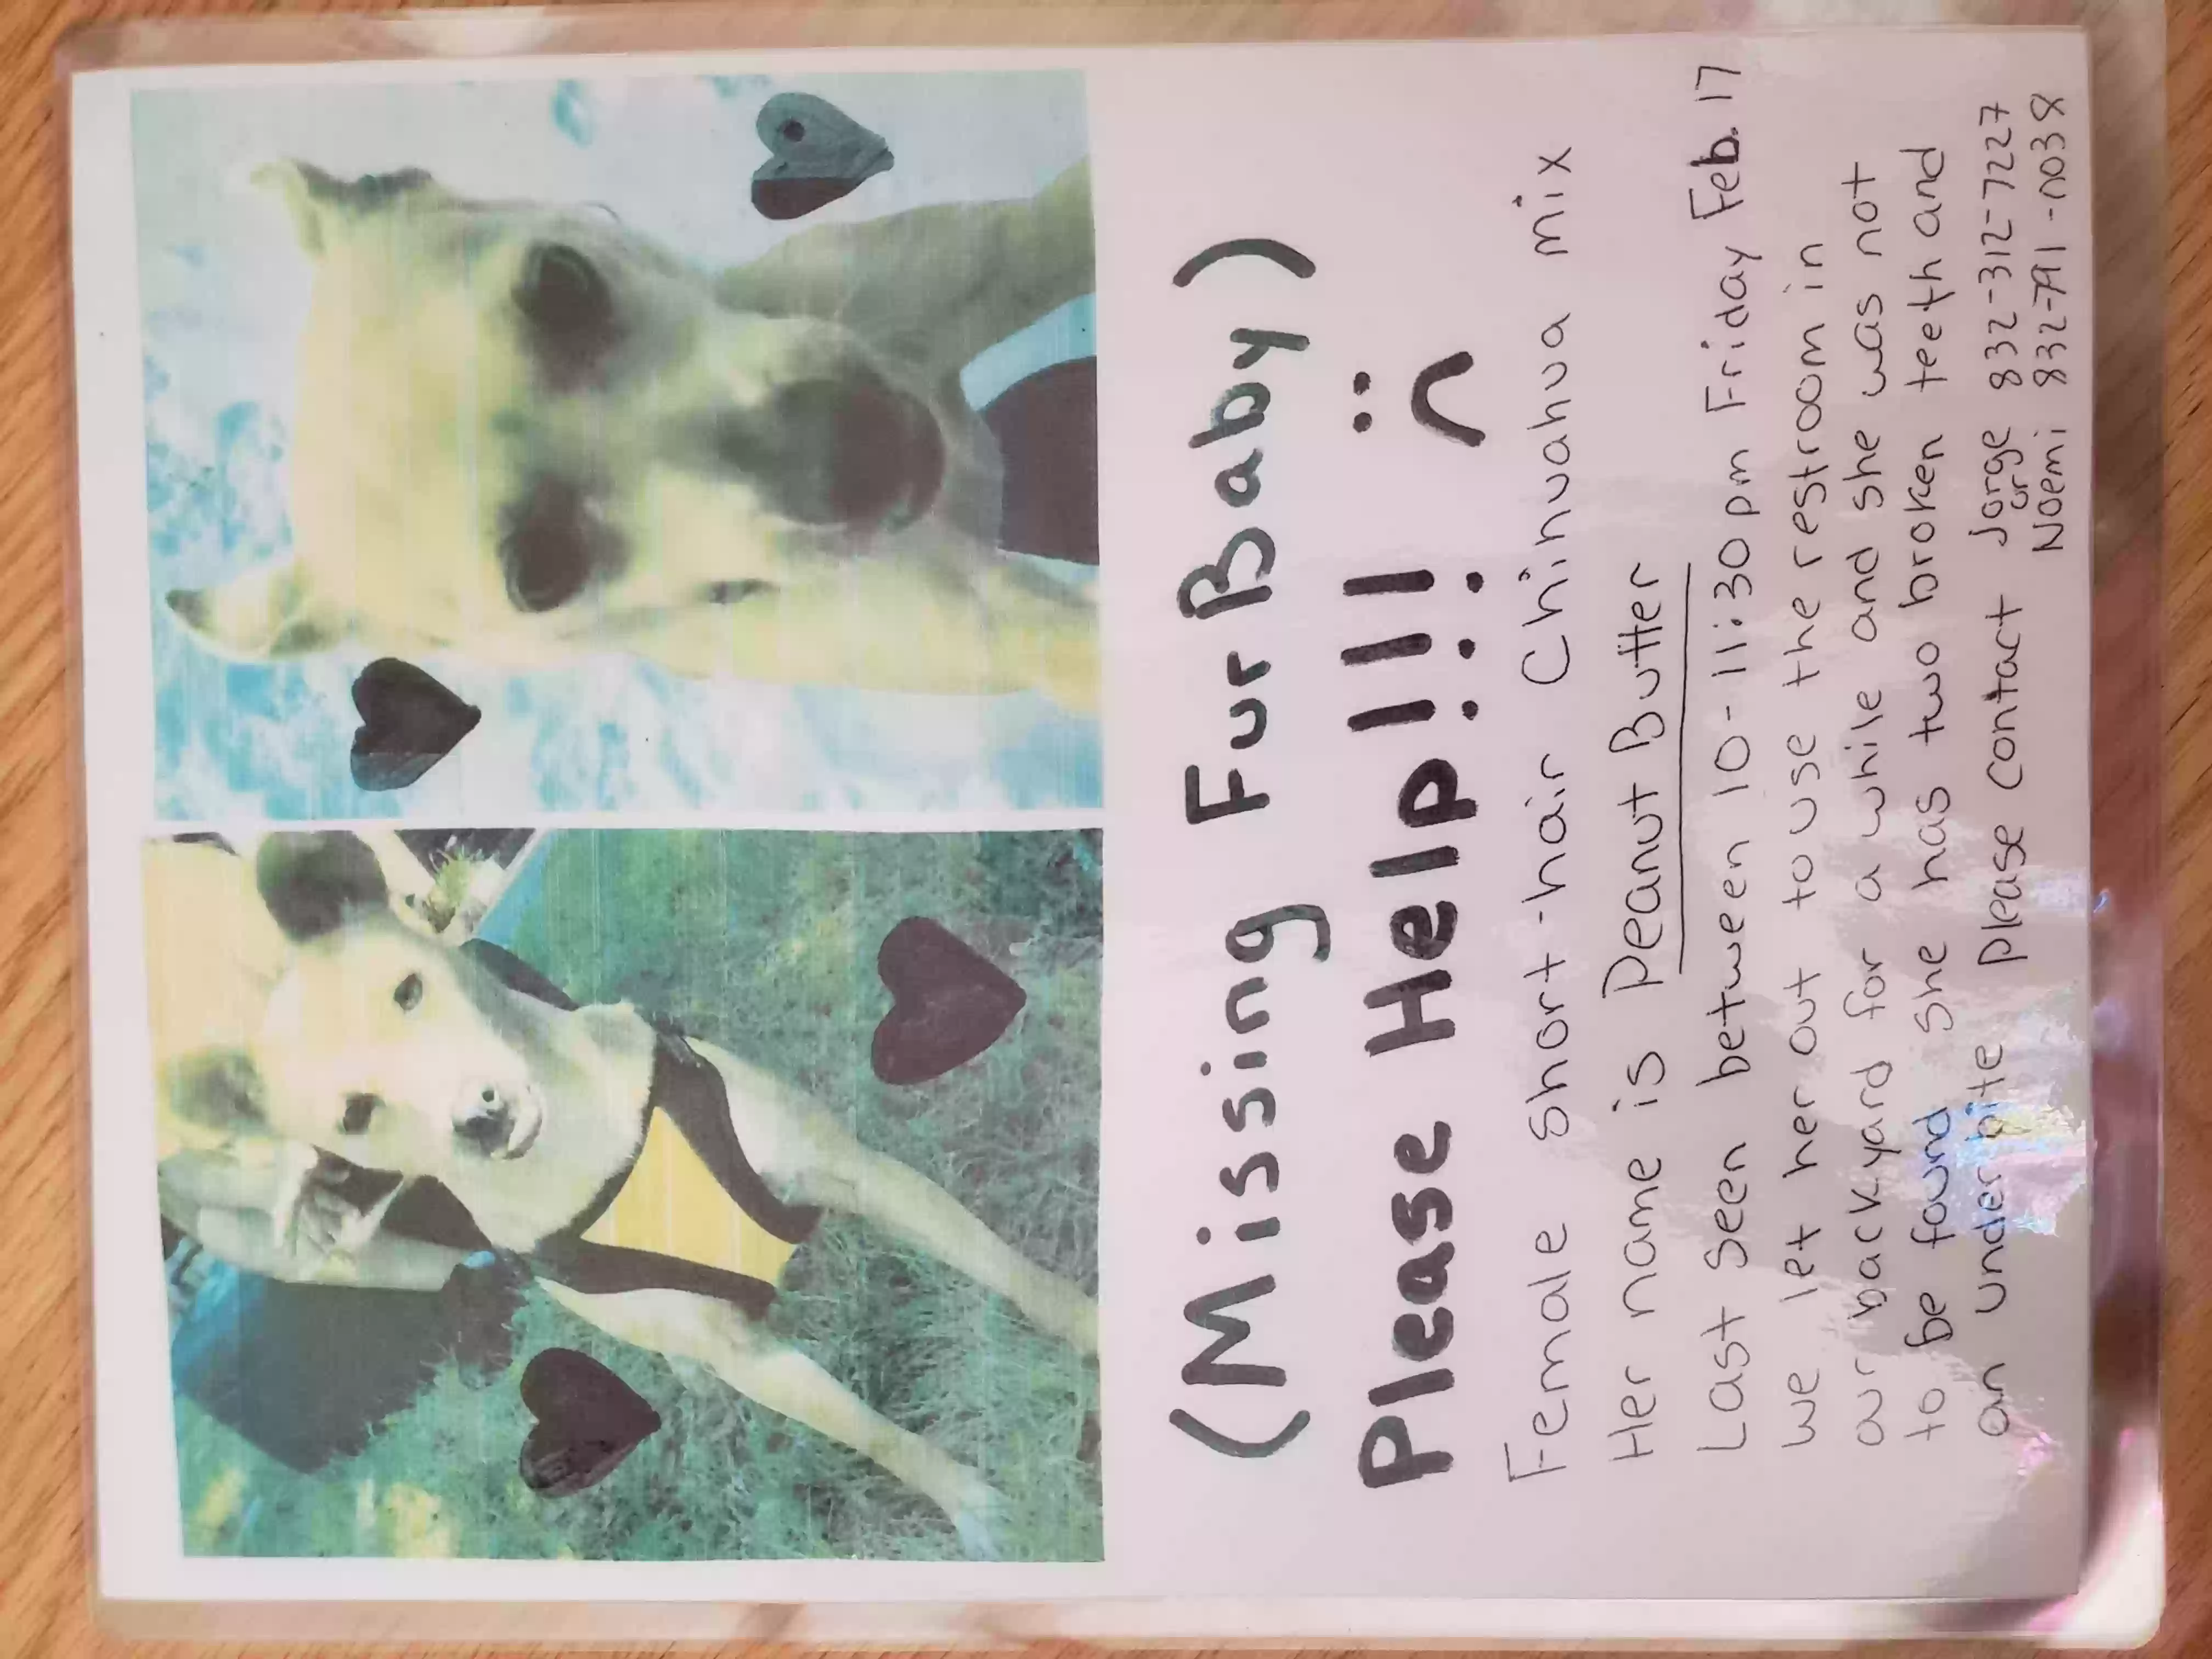 (Missing Fur Baby)
Please Help!!! :(
Female short-hair Chihuahua mix
Her name is Peanut Butter
Last seen between 10-11:30pm Friday Feb. 17
we let her out to use the restroom in
our backyard for a while and she was not
to be found she has two broken teeth and
an underbite please contact Jorge 832-312-7227
or
Noemi 832-791-0038